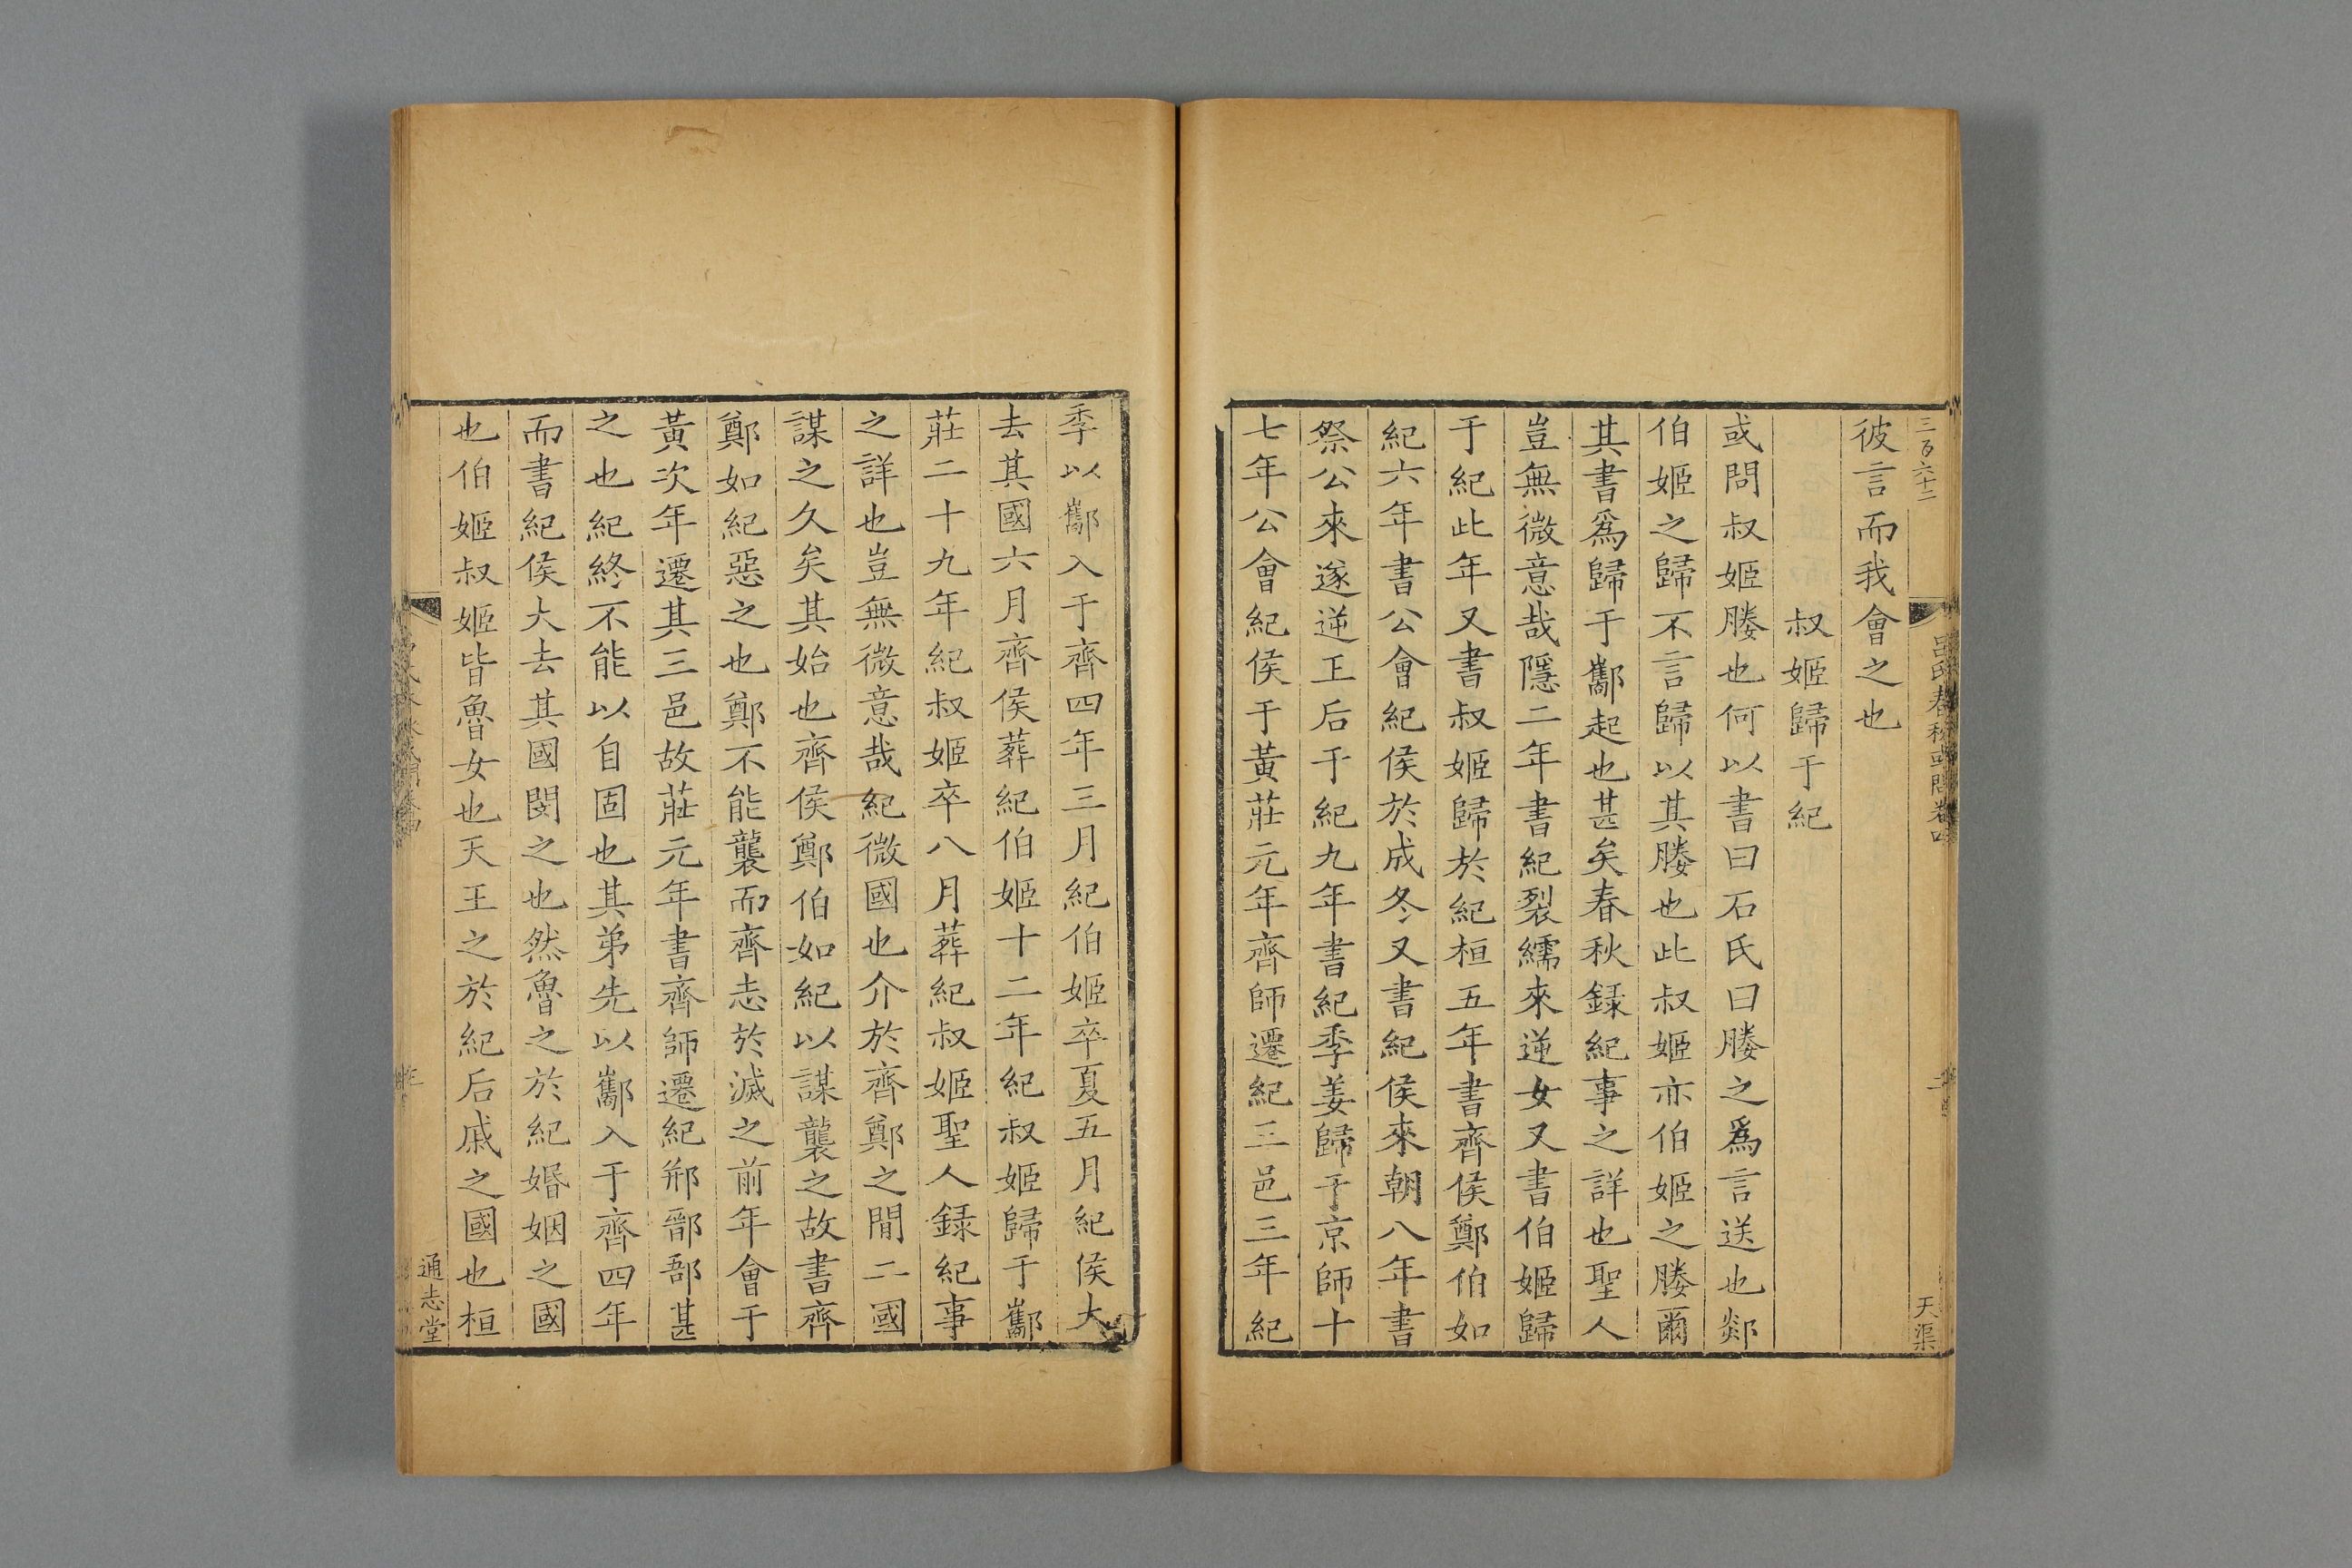 三百六十二
呂氏春秋或問卷四
二
天渠
彼言而我會之也
叔姬歸于紀
或問叔姬媵也何以書曰石氏曰媵之爲言送也郯
伯姬之歸不言歸以其媵也此叔姬亦伯姬之媵爾
其書爲歸于酅起也甚矣春秋録紀事之詳也聖人
豈無微意哉隱二年書紀裂繻來逆女又書伯姬歸
于紀此年又書叔姬歸於紀桓五年書齊侯鄭伯如
紀六年書公會紀侯於成冬又書紀侯來朝八年書
祭公來遂逆王后于紀九年書紀季姜歸于京師十
七年公會紀侯于黃莊元年齊師遷紀三邑三年紀
季以酅入于齊四年三月紀伯姬卒夏五月紀侯大
去其國六月齊侯葬紀伯姬十二年紀叔姬歸于酅
莊二十九年紀叔姬卒八月葬紀叔姬聖人録紀事
之詳也豈無微意哉紀微國也介於齊鄭之閒二國
謀之久矣其始也齊侯鄭伯如紀以謀襲之故書齊
鄭如紀惡之也鄭不能襲而齊志於滅之前年會于
黃次年遷其三邑故莊元年書齊師遷紀郱鄑郚甚
之也紀終不能以自固也其弟先以酅入于齊四年
而書紀侯大去其國閔之也然魯之於紀婚姻之國
也伯姬叔姬皆魯女也天王之於紀后戚之國也桓
通志堂